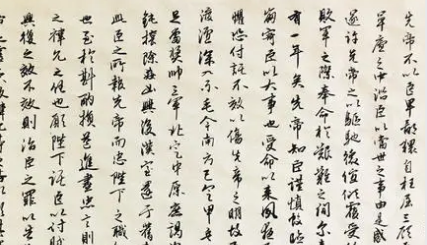 先帝不以臣卑鄙猥自枉屈三顧
草廬之中諮臣以當世之事由是感
遂許先帝之以驅馳後值傾覆受
敗軍之際奉命於艱難之間尔
有一年矣先帝知臣謹慎故臨
崩寄臣以大事也受命以來夙夜
恐付託不效以傷先帝之明故
渡瀘深入不毛今南方已定甲
足當獎帥三軍北定中原庶竭
鈍攘除姦凶興復漢室還于舊
此臣之所報先帝而忠陛下之職
也至於斟酌損益進盡忠言則
之禕允之任也願陛下託臣以討賊
興復之效不效則治臣之罪以告